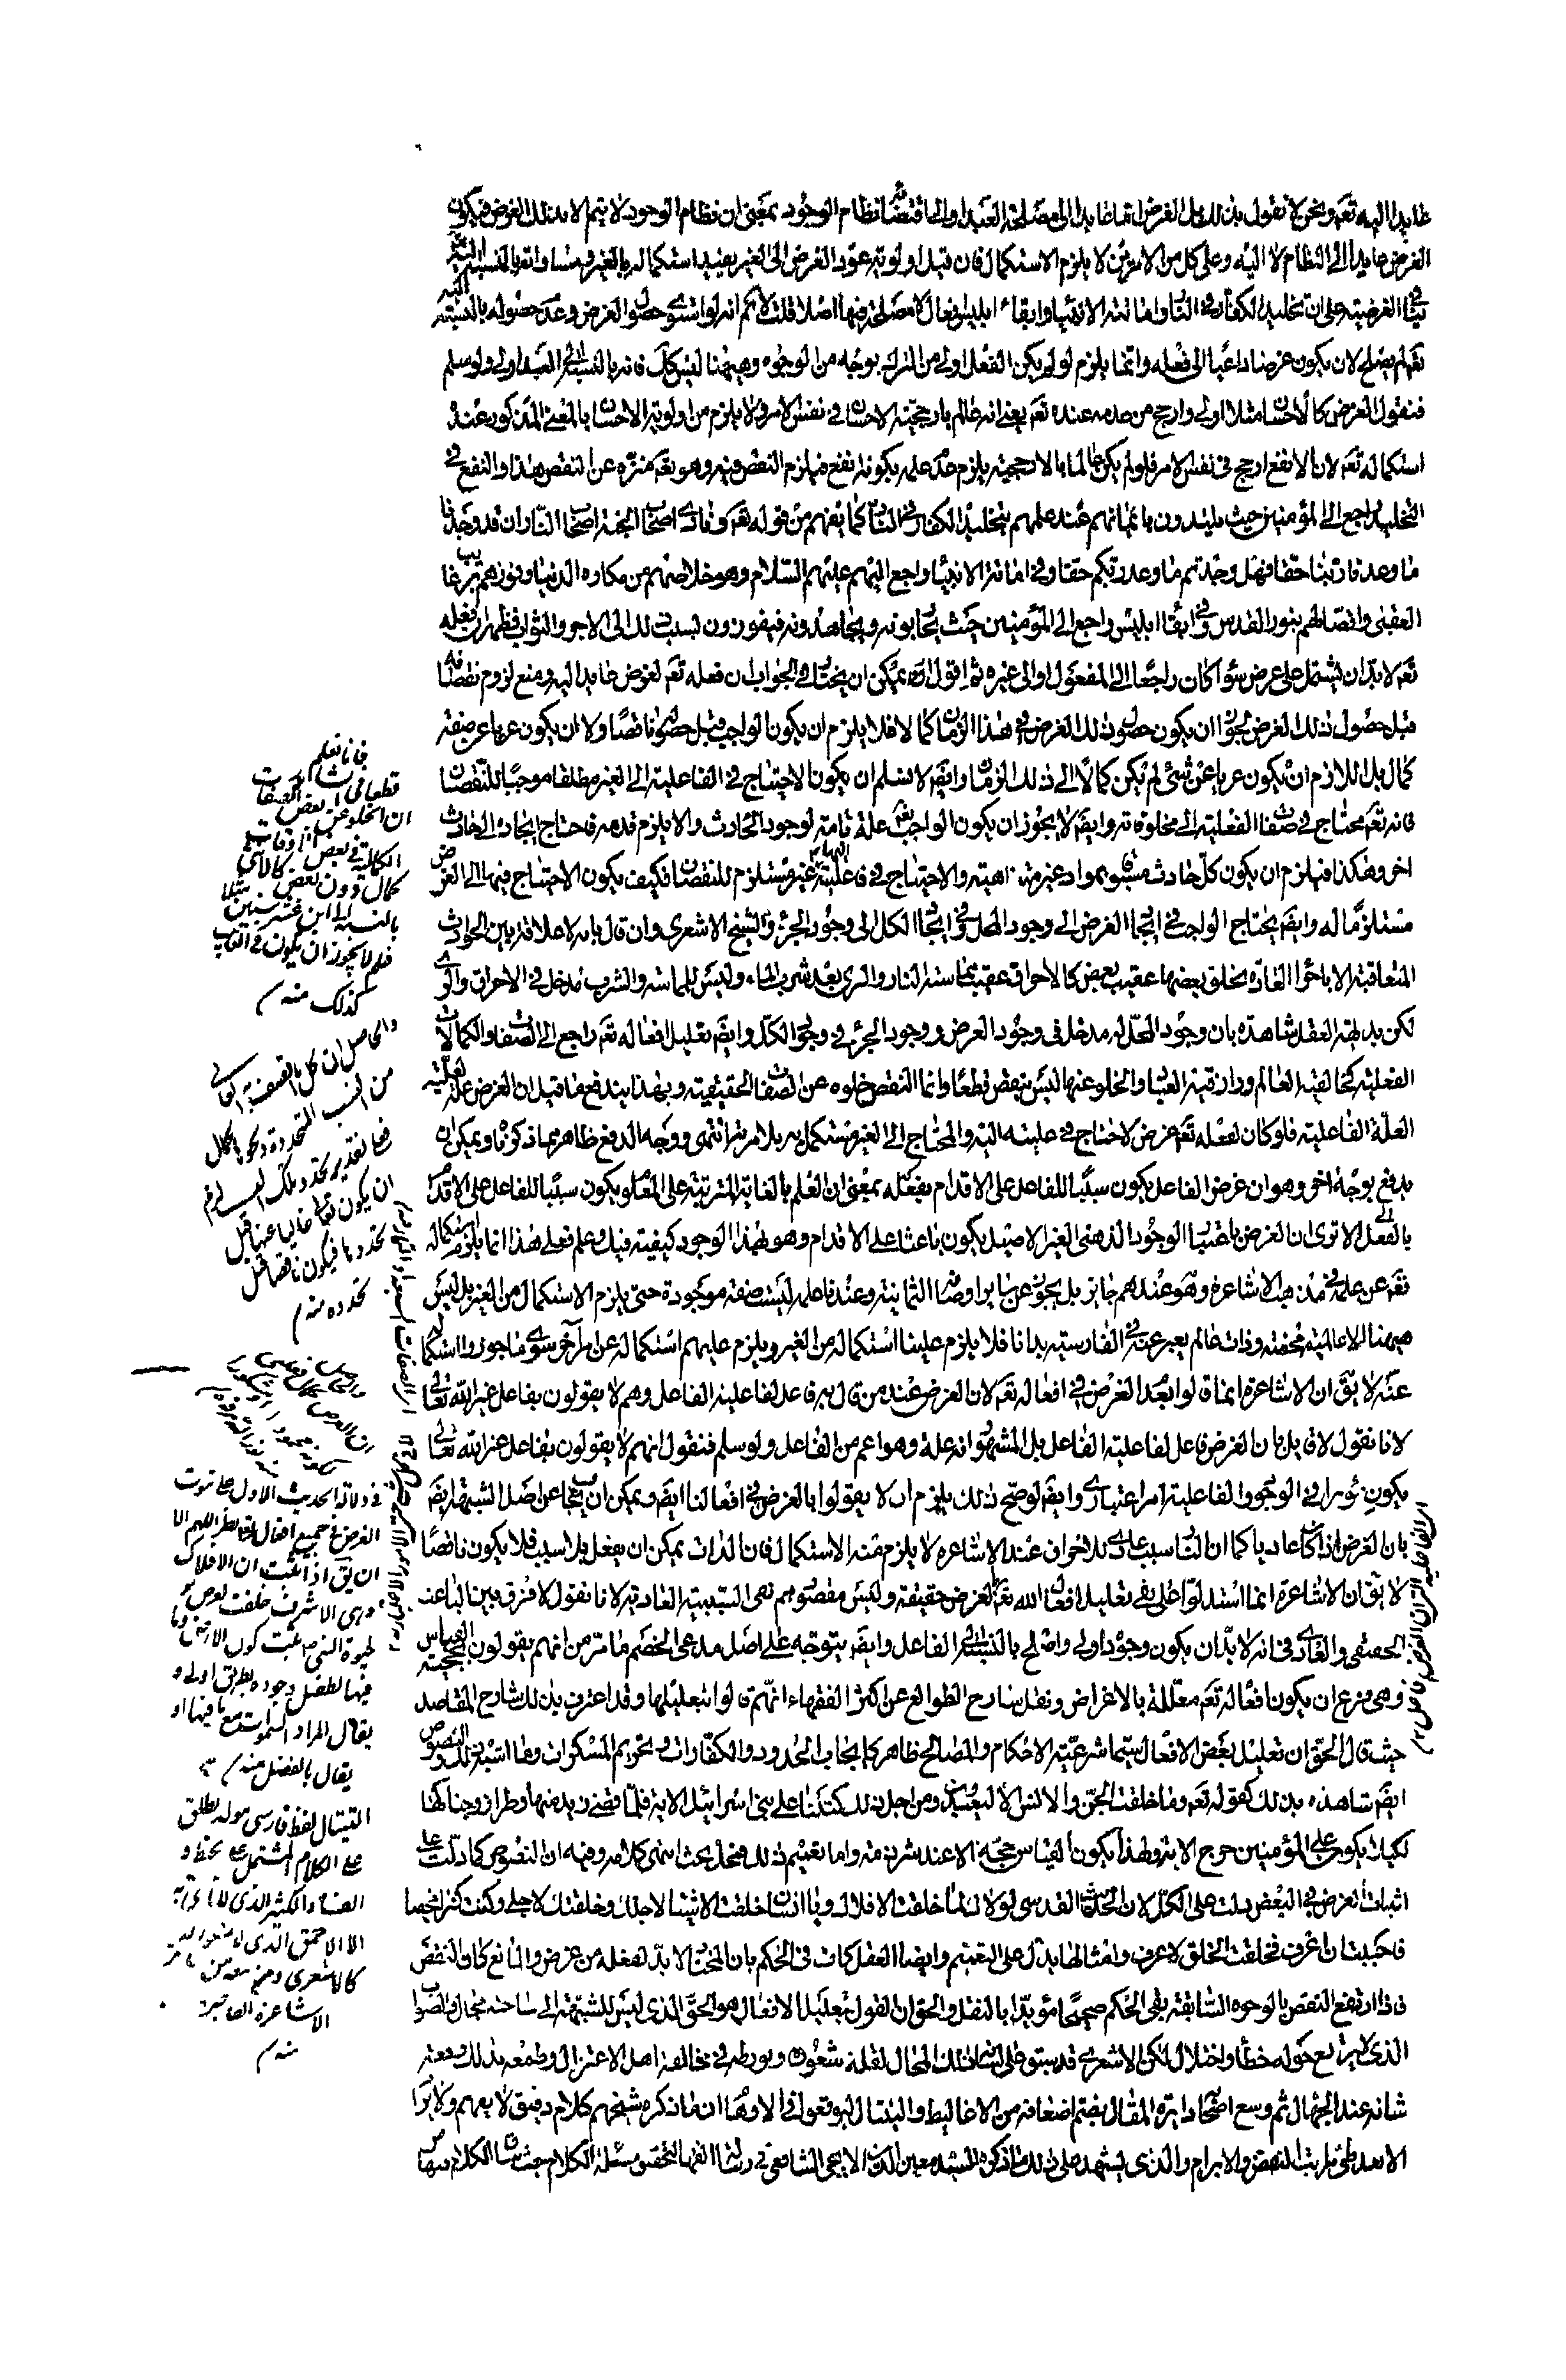 عايدا اليه تعم ونحن لا نقول بذلك بل الغرض اما عايد الى مصلحة العبد او الى اقتضاء نظام الوجود بمعنى ان نظام الوجود لا يتم الا بذلك الغرض فيكون
الغرض عايدا الى النظام لا اليه وعلى كل من الامرين لا يلزم الاستكمال فان قيل اولوية عود الغرض الى الغير يفيد استكماله بالغير ومساواته بالنسبة اليه تعم
ينافي الغرضية على ان تخليد الكفار في النار واماتة الانبياء وابقاء ابليس افعال لا مصلحة فيها اصلا قلت لا نم انه لو استوى حصول الغرض وعدم حصوله بالنسبة اليه
تعم لم يصلح لان يكون غرضا داعيا الى فعله وانما يلزم لو لم يكن الفعل اولى من الترك بوجه من الوجوه وههنا ليس كك فانه بالنسبة الى العبد اولى ولو سلم
فنقول الغرض كالاحسان مثلا اولى وارجح من عدمه عنده تعم بمعنى انه عالم بارجحية الاحسان في نفس الامر ولا يلزم من اولوية الاحسان بالمعنى المذكور عنده
استكماله تعم لان الانفع ارجح في نفس الامر فلو لم يكن عالما بالارجحية يلزم عدم علمه بكونه انفع فيلزم النقص فيه وهو تعم منزه عن النقص هذا والنفع في
التخليد راجع الى المؤمنين حيث يلتذون بايمانهم عند علمهم بتخليد الكفار في النار كما يفهم من قوله تعم ونادى اصحاب الجنة اصحاب النار ان قد وجدنا
ما وعدنا ربنا حقا فهل وجدتم ما وعد ربكم حقا وفي اماتة الانبياء راجع اليهم عليهم السلام وهو خلاصهم من مكاره الدنيا وفوزهم برغايب
العقبى واتصالهم بنور القدس وفي ابقاء ابليس راجع الى المؤمنين حيث يحاربونه ويجاهدونه فيفوزون بسبب ذلك الى الاجر والثواب فظهر ان فعله
تعم لا بد ان يشتمل على غرض سواء كان راجعا الى المفعول او الى غيره ثم اقول انه يمكن ان يختار في الجواب ان فعله تعم لغرض عايد اليه ومنع لزوم نقصانه
قبل حصول ذلك الغرض لجواز ان يكون حصول ذلك الغرض في هذا الزمان كمالا فلا يلزم ان يكون الواجب قبل حصوله ناقصا ولا ان يكون عريا عن صفة
كمال بل اللازم ان يكون عريا عن شيء لم يكن كمالا في ذلك الزمان وايضم لا نسلم ان يكون الاحتياج في الفاعلية الى الغير مطلقا موجبا للنقصان
فانه تعم محتاج في صفات الفعلية الى مخلوقاته وايضم لا يجوز ان يكون الواجب تعم علة تامة لوجود الحادث والا يلزم قدمه فاحتاج ايجاده الى حادث
اخر وهكذا فيلزم ان يكون كل حادث مسبوق بمواد غير متناهية والاحتياج في فاعليته اليها غير مستلزم للنقصان فكيف يكون الاحتياج فيها الى الغرض
مستلزما له وايضم يحتاج الواجب في ايجاد الغرض الى وجود المحل وفي ايجاد الكل الى وجود الجزء والشيخ الاشعري وان قال بانه لا علاقة بين الحوادث
المتعاقبة الا باجراء العادة بخلق بعضها عقيب بعض كالاحراق عقيب مماسة النار والري بعد شرب الماء وليس للمماسة والشرب مدخل في الاحراق والري
لكن بديهة العقل شاهدة بان وجود المحل له مدخل في وجود العرض ووجود الجزء في وجود الكل وايضم تعليل افعاله تعم راجع الى الصفات والكمالات
الفعلية كخالقية العالم ورازقية العباد والخلو عنها ليس بنقص قطعا وانما النقص خلوه عن الصفات الحقيقية وبهذا يندفع ما قيل ان الغرض علة لعلية
العلة الفاعلية فلو كان لفعله تعم غرض لاحتاج في عليته اليه والمحتاج الى الغير مستكمل به بلا مرية انتهى ووجه الدفع ظاهر مما ذكرنا ويمكن ان
يدفع بوجه اخر وهو ان غرض الفاعل يكون سببا للفاعل على الاقدام بفعله بمعنى ان العلم بالغاية المترتبة على المعلول يكون سببا للفاعل على الاقدام
بالفعل الا ترى ان الغرض باعتبار الوجود الذهني الغير الاصيل يكون باعثا على الاقدام وهو بهذا الوجود كيفية فيه وعلم فعلى هذا انما يلزم استكماله
تعم عن علمه في مذهب الاشاعرة وهو عندهم جايز بل يجوز عن ساير اوصافه الثمانية وعندنا علمه ليست صفة موجودة حتى يلزم الاستكمال من الغير بل ليس
ههنا الا عالمية محضة وذات عالم يعبر عنه في الفارسية بدانا فلا يلزم علينا استكماله من الغير ويلزم عليهم استكماله عن امر اخر سوى ما جوزوا استكماله
عنه لا يق ان الاشاعرة انما قالوا بعدم الغرض في افعاله تعم لان الغرض عند من قال به فاعل لفاعلية الفاعل وهم لا يقولون بفاعل غير الله تعالى
لانا نقول لا قايل بان الغرض فاعل لفاعلية الفاعل بل المشهور انه علة وهو اعم من الفاعل ولو سلم فنقول انهم لا يقولون بفاعل غير الله تعالى
يكون مؤثرا في الوجود والفاعلية امر اعتباري وايضم لو صح ذلك يلزم ان لا يقولوا بالغرض في افعالنا ايضم ويمكن ان يجاب عن اصل الشبهة ايضم
بان الغرض اذا كان عاديا كما ان النار سبب عادي للاحراق عند الاشاعرة لا يلزم منه الاستكمال فان الذات يمكن ان يفعل بلا سبب فلا يكون ناقصا
لا يق ان الاشاعرة انما استدلوا على نفي تعليل افعال الله تعم بالغرض حقيقة وليس مقصودهم نفي السببية العادية لانا نقول لا فرق بين الباعث
الحقيقي والعادي في انه لا بد ان يكون وجوده اولى واصلح بالنسبة الى الفاعل وايضم يتوجه على اصل مدعى الخصم ما مر من انهم يقولون بحجية القياس
وهي فرع ان يكون افعاله تعم معللة بالاغراض ونقل شارح الطوالع عن اكثر الفقهاء انهم قالوا بتعليلها وقد اعترف بذلك شارح المقاصد
حيث قال الحق ان تعليل بعض الافعال سيما شرعية الاحكام والمصالح ظاهر كايجاب الحدود والكفارات وتحريم المسكرات وما اشبه ذلك والنصوص
ايضم شاهدة بذلك كقوله تعم وما خلقت الجن والانس الا ليعبدون ومن اجل ذلك كتبنا على بني اسرائيل الاية فلما قضى زيد منها وطرا زوجناكها
لكيلا يكون على المؤمنين حرج الاية ولهذا يكون القياس حجة الا عند شرذمة واما تعميم ذلك فمحل بحث انتهى كلامه وفيه ان النصوص كما دلت على
اثبات الغرض في البعض دلت على الكل لان الحديث القدسي لولاك لما خلقت الافلاك ويا انسان خلقت الاشياء لاجلك وخلقتك لاجلي وكنت كنزا مخفيا
فاحببت ان اعرف فخلقت الخلق لاعرف وامثالها يدل على التعميم وايضا العقل كاف في الحكم بان المختار لا بد لفعله من غرض والمانع كان النقص
فاذا ارتفع النقص بالوجوه السابقة بقي الحكم صحيحا مؤيدا بالنقل والحق ان القول بتعليل الافعال هو الحق الذي ليس للشبهة الى ساحته مجال والصواب
الذي لا يرتع حوله خطأ واختلال لكن الاشعري قد سبق على لسانه ذلك المحال لقلة شعوره وتورطه في مخالفة اهل الاعتزال وطمعه بذلك رفعة
شانه عند الجهال ثم وسع اصحابه دايرة المقال بضم اضعافه من الاغاليط والتيتال ليوقعوا في الاوهام ان ما ذكره شيخهم كلام دقيق لا يفهم ولا يرام
الا بعد طي مراتب النقض والابرام والذي يشهد على ذلك ما ذكره السيد معين الدين الايجي الشافعي في رسالة الفها لتحقيق مسئلة الكلام حيث
فانا نعلم
قطعا في
ان الخلو عن بعض الصفات
الكمالية في بعض الاوقات
كمال دون بعض كالالتحى
بالنسبة الى ابن عشر سنين مثلا
فلم لا يجوز ان يكون في الغايب
كذلك منه
والحاصل ان
من النسب المتجددة
فعلى تقدير تجدد تلك النسب لا يلزم
ان يكون تعالى خاليا عنها قبل
تجددها فيكون ناقصا قبل
تجدده منه
في دلالة الحديث الاول على ثبوت
الغرض في جميع افعاله تعالى نظر اللهم الا
ان يق اذا ثبت ان الافلاك
وهي الاشرف خلقت لغرض
ثبت كون الارض وما
فيها لفضل وجوده بطريق اولى او
يقال المراد السموات مع ما فيها او
يقال بالفضل منه
التيتال لفظ فارسي مولد يطلق
على الكلام المشتمل على الخطاء و
الفساد والكثير الذي لا
الا الاحمق الذي لا شعور له
كالاشعري ومن تبعه من
الاشاعرة
منه